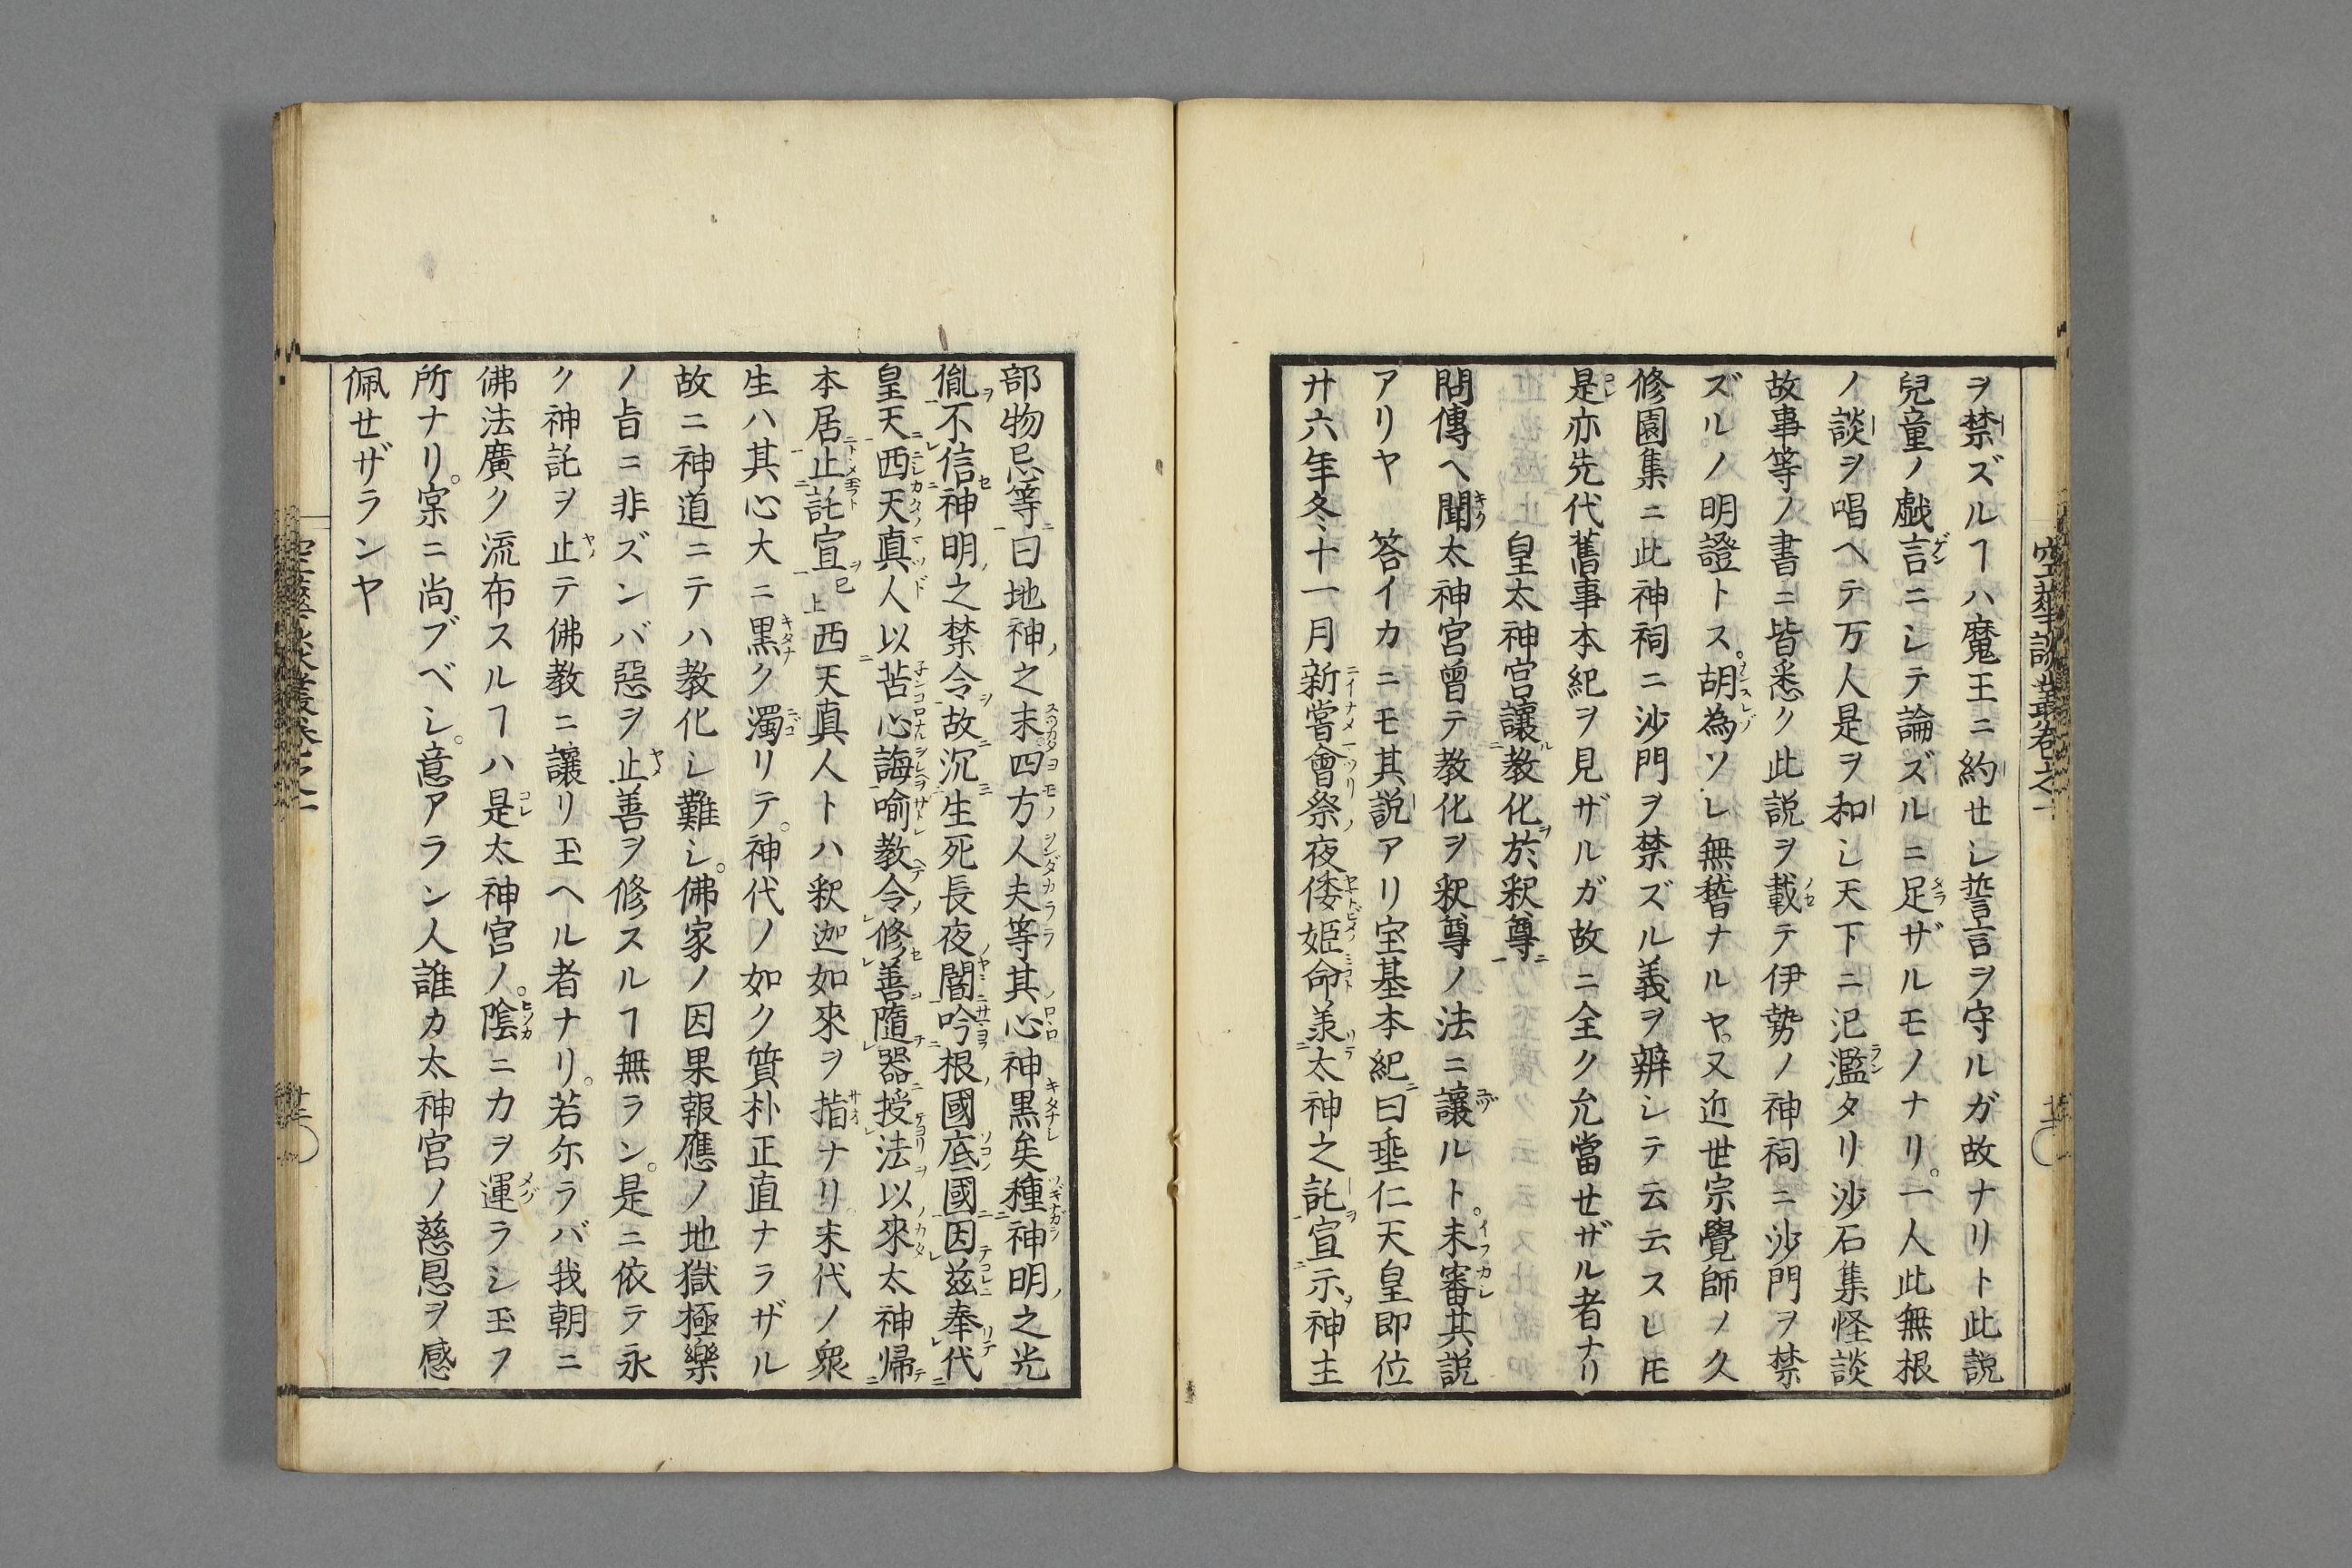 ヲ禁ズルヿハ魔王ニ約セシ誓言ヲ守ルガ故ナリト此説
兒童ノ戯言ニシテ論ズルニ足ザルモノナリ。一人此無根
ノ談ヲ唱ヘテ万人是ヲ和シ天下ニ氾濫タリ沙石集怪談
故事等ノ書ニ皆悉ク此説ヲ載テ伊勢ノ神祠ニ沙門ヲ禁
ズルノ明證トス。胡為ソレ無稽ナルヤ。又近世宗覺師ノ久
修園集ニ此神祠ニ沙門ヲ禁ズル義ヲ辨シテ云云スレ𪜈
是亦先代舊事本紀ヲ見ザルガ故ニ全ク允當セザル者ナリ
皇太神宮讓教化於釈尊
問傳ヘ聞太神宮曾テ教化ヲ釈尊ノ法ニ讓ルト。未審其説
アリヤ 答イカニモ其説アリ宝基本紀曰垂仁天皇即位
廿六年冬十一月新嘗會祭夜倭姫命羕太神之託宣示神主
部物忌等曰地神之末四方人夫等其心神黒矣種神明之光
胤不信神明之禁令故沉生死長夜闇吟根國底國因茲奉代
皇天西天真人以苦心誨喻教令修善隨器授法以來太神帰
本居止託宣已上西天真人トハ釈迦如來ヲ指ナリ末代ノ衆
生ハ其心大ニ黒ク濁リテ。神代ノ如ク質朴正直ナラザル
故ニ神道ニテハ教化シ難シ。佛家ノ因果報應ノ地獄極樂
ノ旨ニ非ズンバ惡ヲ止善ヲ修スルヿ無ラン。是ニ依テ永
ク神託ヲ止テ佛教ニ讓リ玉ヘル者ナリ。若尓ラバ我朝ニ
佛法廣ク流布スルヿハ是太神宮ノ。陰ニカヲ運ラシ玉フ
所ナリ。寀ニ尚ブベシ。意アラン人誰カ太神宮ノ慈恩ヲ感
佩セザランヤ